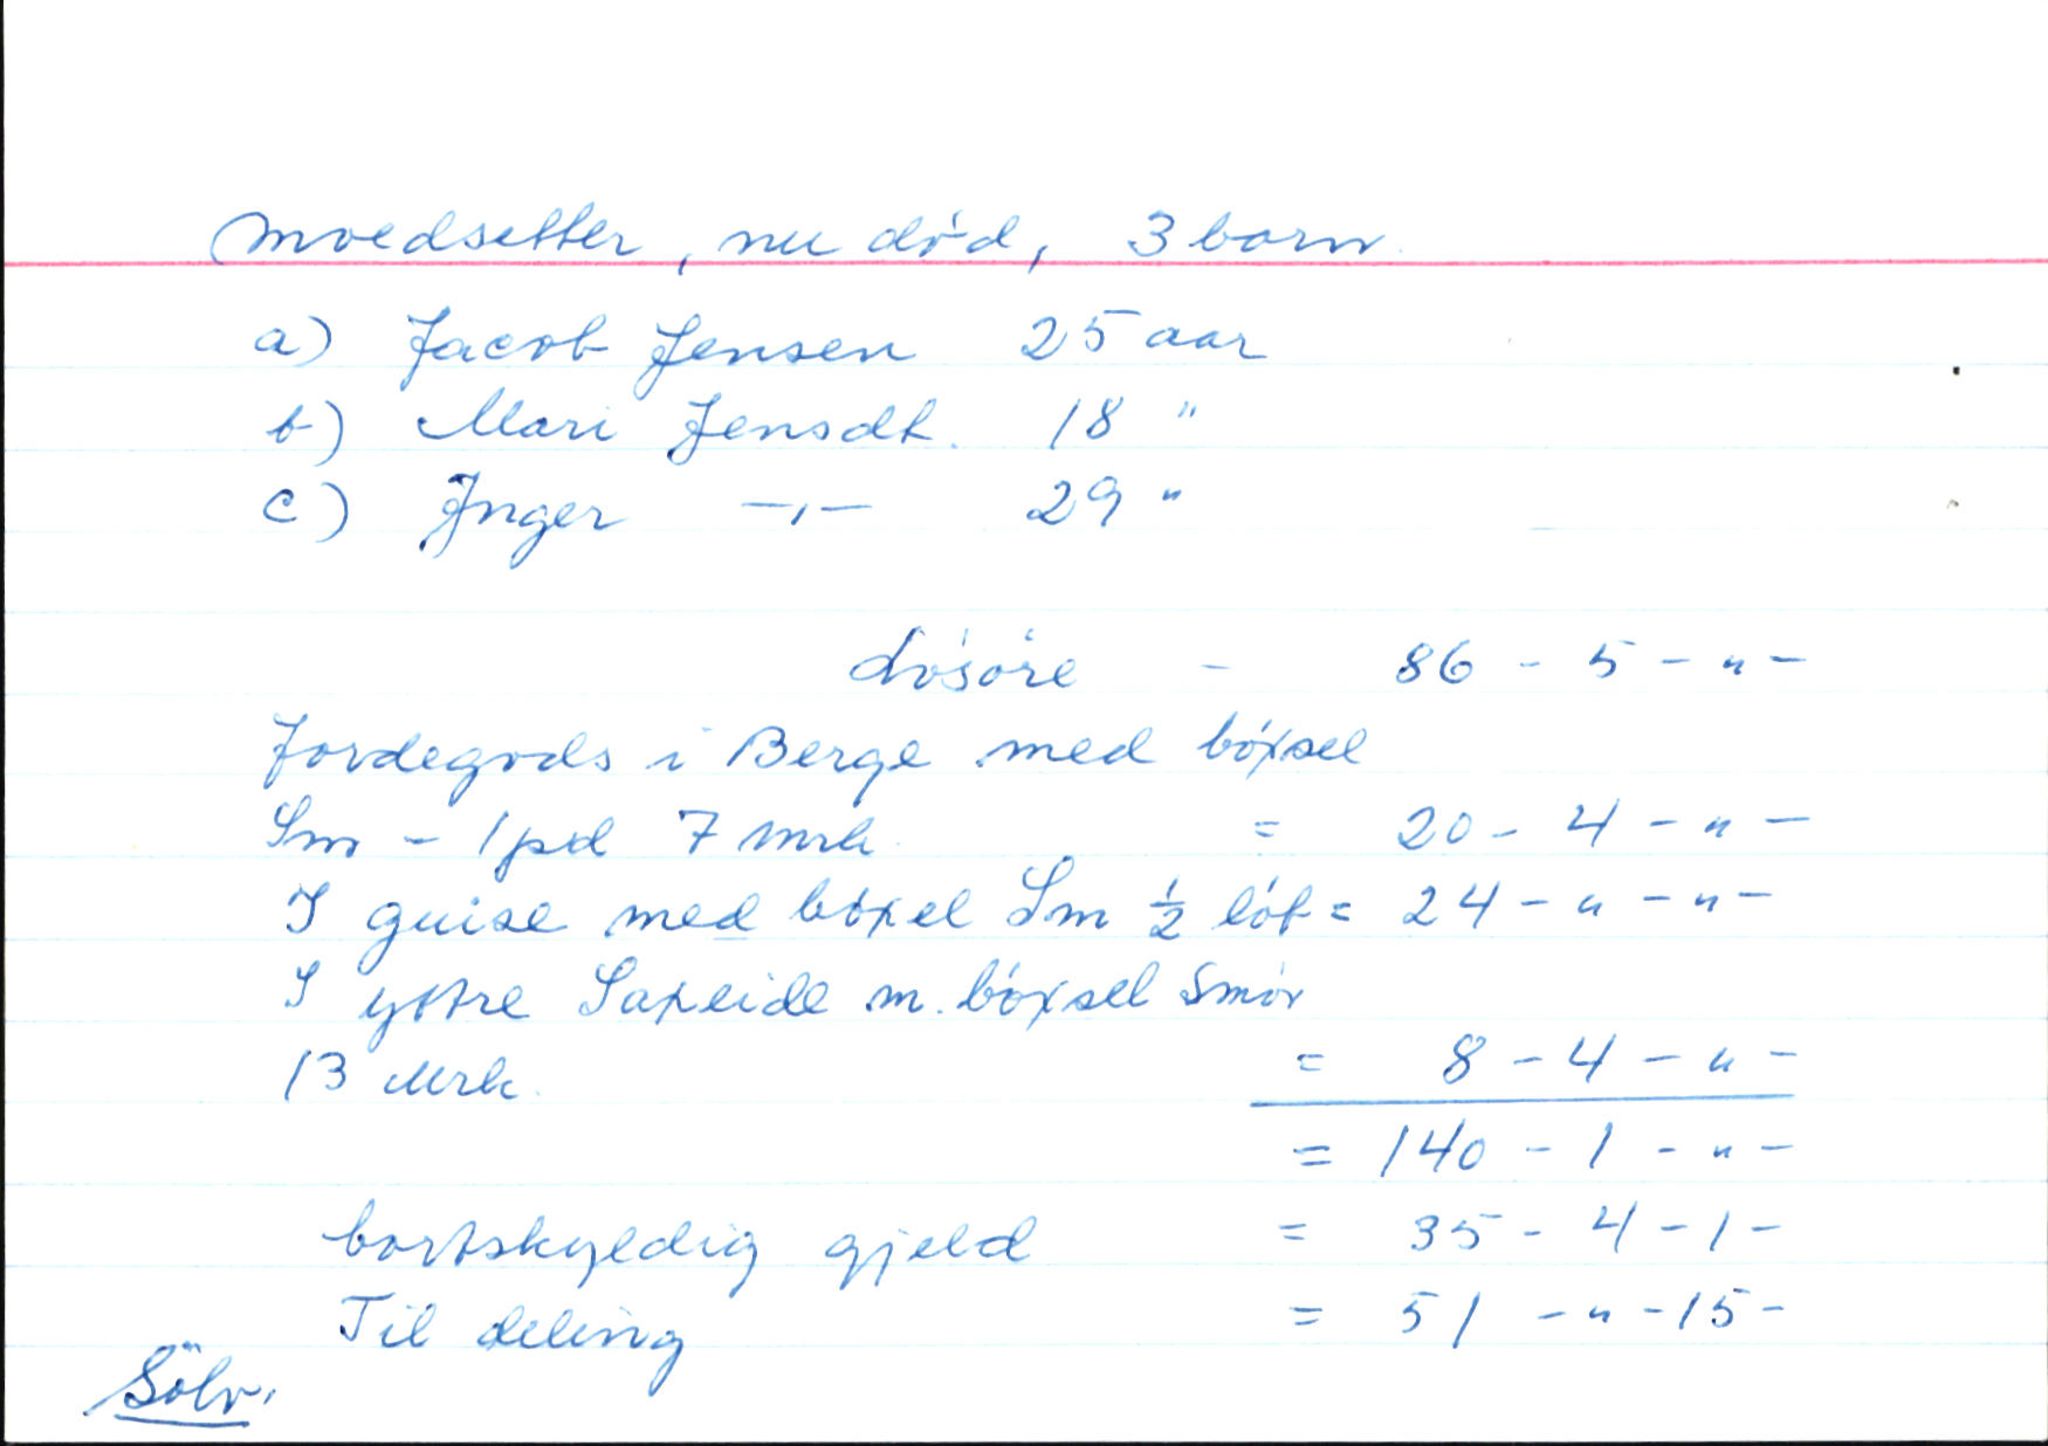 Moedsetter, nu död, 3 born.
a) Jacob Jensen 25 aar
b) Mari Jensdt. 18 "
c) Inger —,— 29 "
Lösöre - 86 - 5 - " -
Jordegods i Berge med böxsel
Sm - 1 pd 7 mrk. = 20 - 4 - " -
I guise med böxel Sm ½ löb = 24 - " - " -
I yttre Saxeide m. böxsel Smör
13 Mrk. = 8 - 4 - " -
= 140 - 1 - " -
bortskyldig gjeld = 35 - 4 - 1 -
Til deling = 51 - " - 15 -
Sölv.